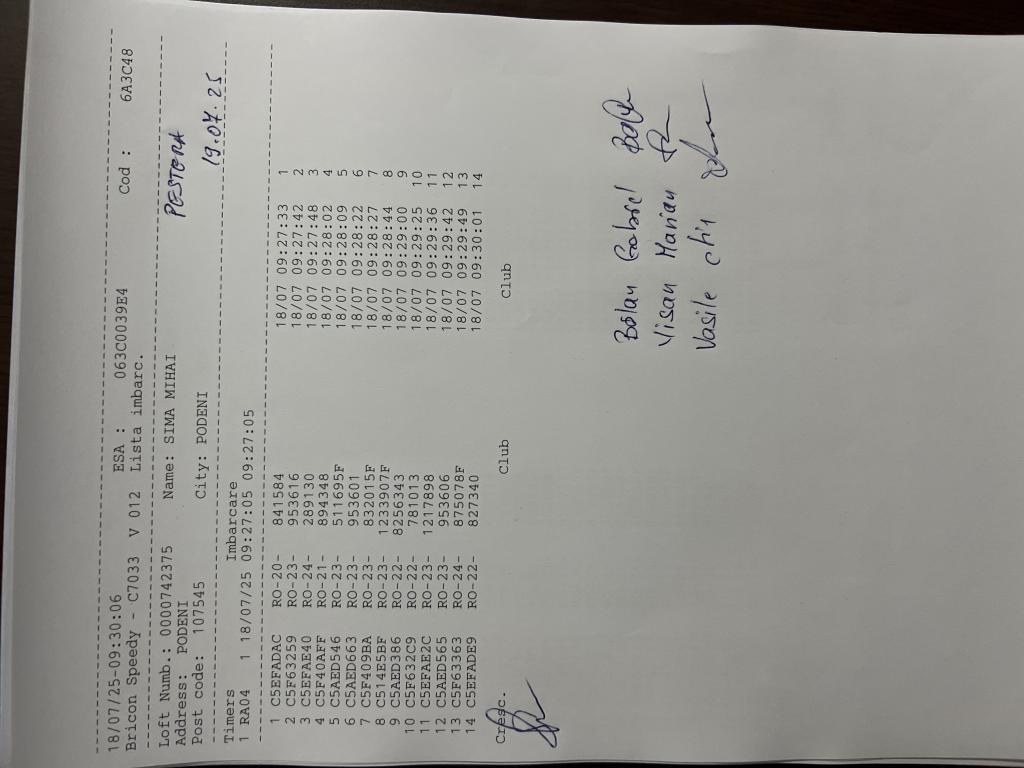 18/07/25-09:30:06 ESA : 063C00039E4 Cod : 6A3C48
Bricon Speedy - C7033 V 012 Lista imbarc.
Loft Numb.: 0000742375 Name: SIMA MIHAI
Address: PODENI
Post code: 107545 City: PODENI
19.07.25
Timers Imbarcare
1 RA04 1 18/07/25 09:27:05 09:27:05
1 C5EFADAC RO-20- 841584 18/07 09:27:33 1
2 C5F63259 RO-23- 953616 18/07 09:27:42 2
3 C5EFAE40 RO-24- 289130 18/07 09:27:48 3
4 C5F40AFF RO-21- 894348 18/07 09:28:02 4
5 C5AED546 RO-23- 511695F 18/07 09:28:09 5
6 C5AED663 RO-23- 953601 18/07 09:28:22 6
7 C5F409BA RO-23- 832015F 18/07 09:28:27 7
8 C514E5BF RO-23- 1233907F 18/07 09:28:44 8
9 C5AED386 RO-22- 8256343 18/07 09:29:00 9
10 C5F632C9 RO-22- 781013 18/07 09:29:25 10
11 C5EFAE2C RO-23- 1217898 18/07 09:29:36 11
12 C5AED565 RO-23- 953606 18/07 09:29:42 12
13 C5F63363 RO-24- 875078F 18/07 09:29:49 13
14 C5EFADE9 RO-22- 827340 18/07 09:30:01 14
Cresc. Club Club
Bolan Gabriel
Marian
Vasile